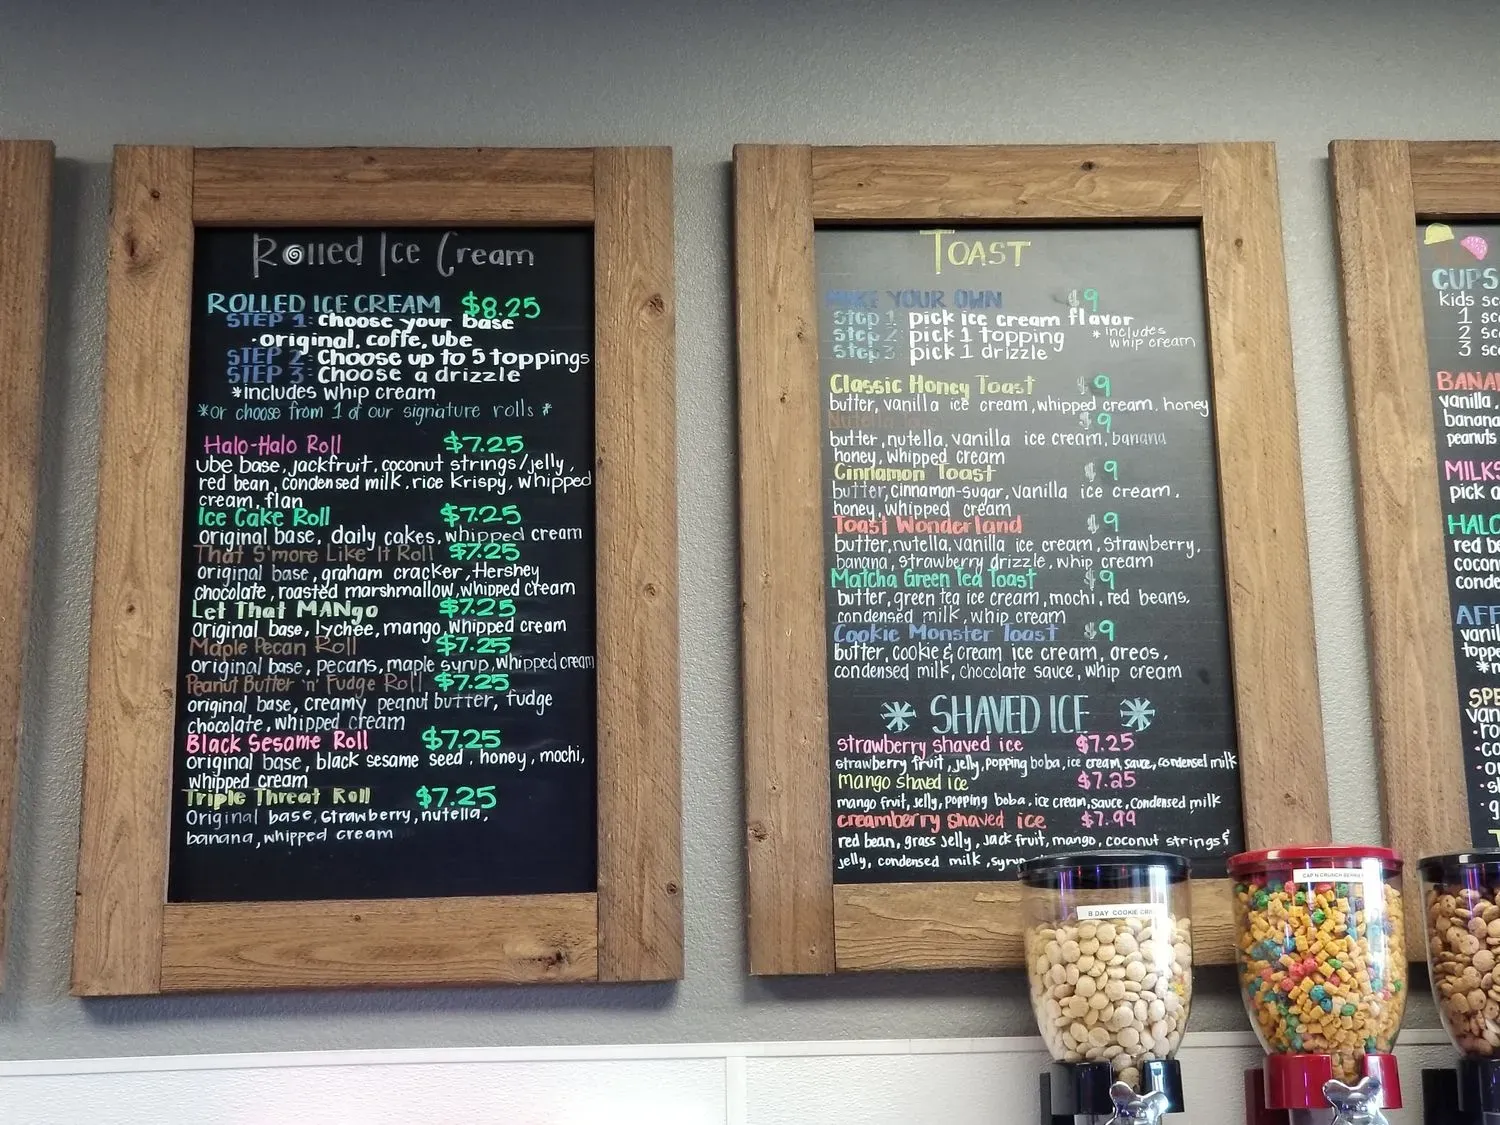 Rolled Ice Cream
ROLLED ICE CREAM $8.25
STEP 1: Choose your base
·original, coffe, ube
STEP 2: Choose up to 5 toppings
STEP 3: Choose a drizzle
*includes whip cream
*or choose from 1 of our signature rolls *
Halo-Halo Roll $7.25
ube base, jackfruit, coconut strings/jelly,
red bean, condensed milk, rice Krispy, whipped
cream, flan
Ice Cake Roll $7.25
original base, daily cakes, whipped cream
That S'more Like It Roll $7.25
original base, graham cracker, Hershey
chocolate, roasted marshmallow, whipped cream
Let That MANgo $7.25
Original base, lychee, mango, whipped cream
Maple Pecan Roll $7.25
original base, pecans, maple syrup, whipped cream
Peanut Butter 'n' Fudge Roll $7.25
original base, creamy peanut butter, fudge
chocolate, whipped cream
Black Sesame Roll $7.25
original base, black sesame seed, honey, mochi,
whipped cream
Triple Threat Roll $7.25
Original base, strawberry, nutella,
banana, whipped cream
TOAST
MAKE YOUR OWN $9
Step 1: pick ice cream flavor
Step 2: pick 1 topping
Step 3: pick 1 drizzle
*includes
whip cream
Classic Honey Toast $9
butter, vanilla ice cream, whipped cream, honey
Nutella $9
butter, nutella, vanilla ice cream, banana
honey, whipped cream
Cinnamon Toast $9
butter, cinnamon-sugar, vanilla ice cream,
honey, whipped cream
Toast Wonderland $9
butter, nutella, vanilla ice cream, strawberry,
banana, strawberry drizzle, whip cream
Matcha Green Tea Toast $9
butter, green tea ice cream, mochi, red beans,
condensed milk, whip cream
Cookie Monster Toast $9
butter, cookie & cream ice cream, oreos,
condensed milk, chocolate sauce, whip cream
SHAVED ICE
strawberry shaved ice $7.25
strawberry fruit, jelly, popping boba, ice cream, sauce, condensel milk
Mango shaved ice $7.25
mango fruit, jelly, popping boba, ice cream, sauce, condensed milk
creamberry shaved ice $7.99
red bean, grass jelly, jack fruit, mango, coconut strings &
jelly, condensed milk, syrup
CUPS
kids sc
1 sc
2 sc
3 sc
BANA
vanilla,
banana
peanuts
MILKS
pick a
HALO
red be
cocon
conde
AFF
vanil
toppe
SPE
van
B DAY COOKIE CRI
CAP N CRUNCH BERRIE